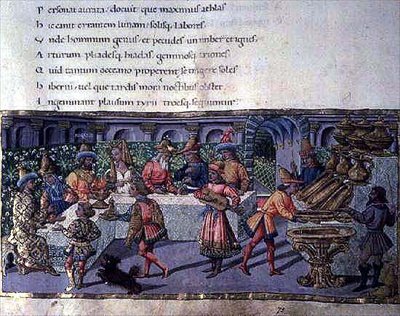 P ersonat aurata / docuit que maximus athlas
H ec canit errantem lunam, solisq; labores
V nde hominum genus / et pecudes imber et ignes
A rcturum pluadesq; hiadas, geminosq; triones
Q uid tantum occeano properent se tigere soles
H iberni / vel que tardis mora noctibus obstet
I ngeminant plausum tyrii troesq; sequuntur